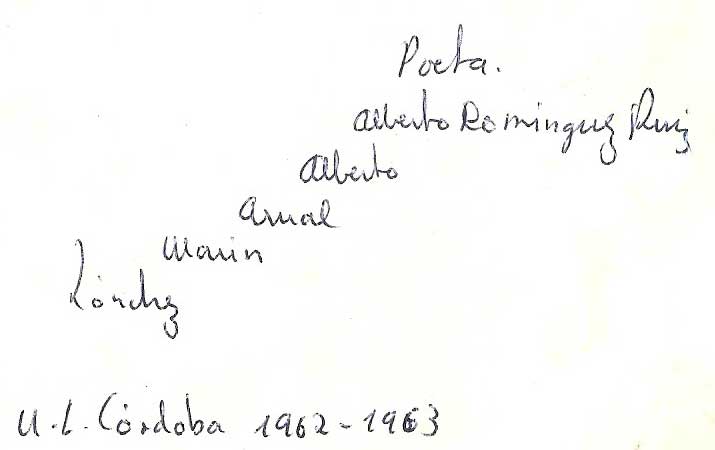 Poeta.
Alberto Rominguez Ruiz
Alberto
Arnal
Marin
Sánchez
U.L. Córdoba 1962-1963